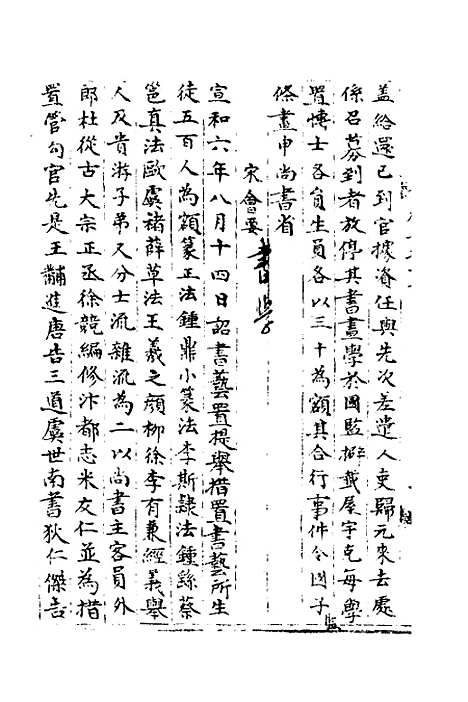 蓋給還已到官據資任與先次差遣人吏歸元來去處
係召募到者放停其書畫學於國監擗截屋宇充每學
置博士各員生員各以三十為額其合行事件令國子監
條畫申尚書省
宋會要 書學
宣和六年八月十四日詔書藝置提舉措置書藝所生
徒五百人為額篆正法鍾鼎小篆法李斯隸法鍾繇蔡
邕真法歐虞褚薛草法王羲之顏柳徐李有兼經義舉
人及貴游子弟又分士流雜流為二以尚書主客員外
郎杜從古大宗正丞徐兢編修汴都志米友仁並為措
置管勾官先是王黼進唐告三道虞世南書狄仁傑告